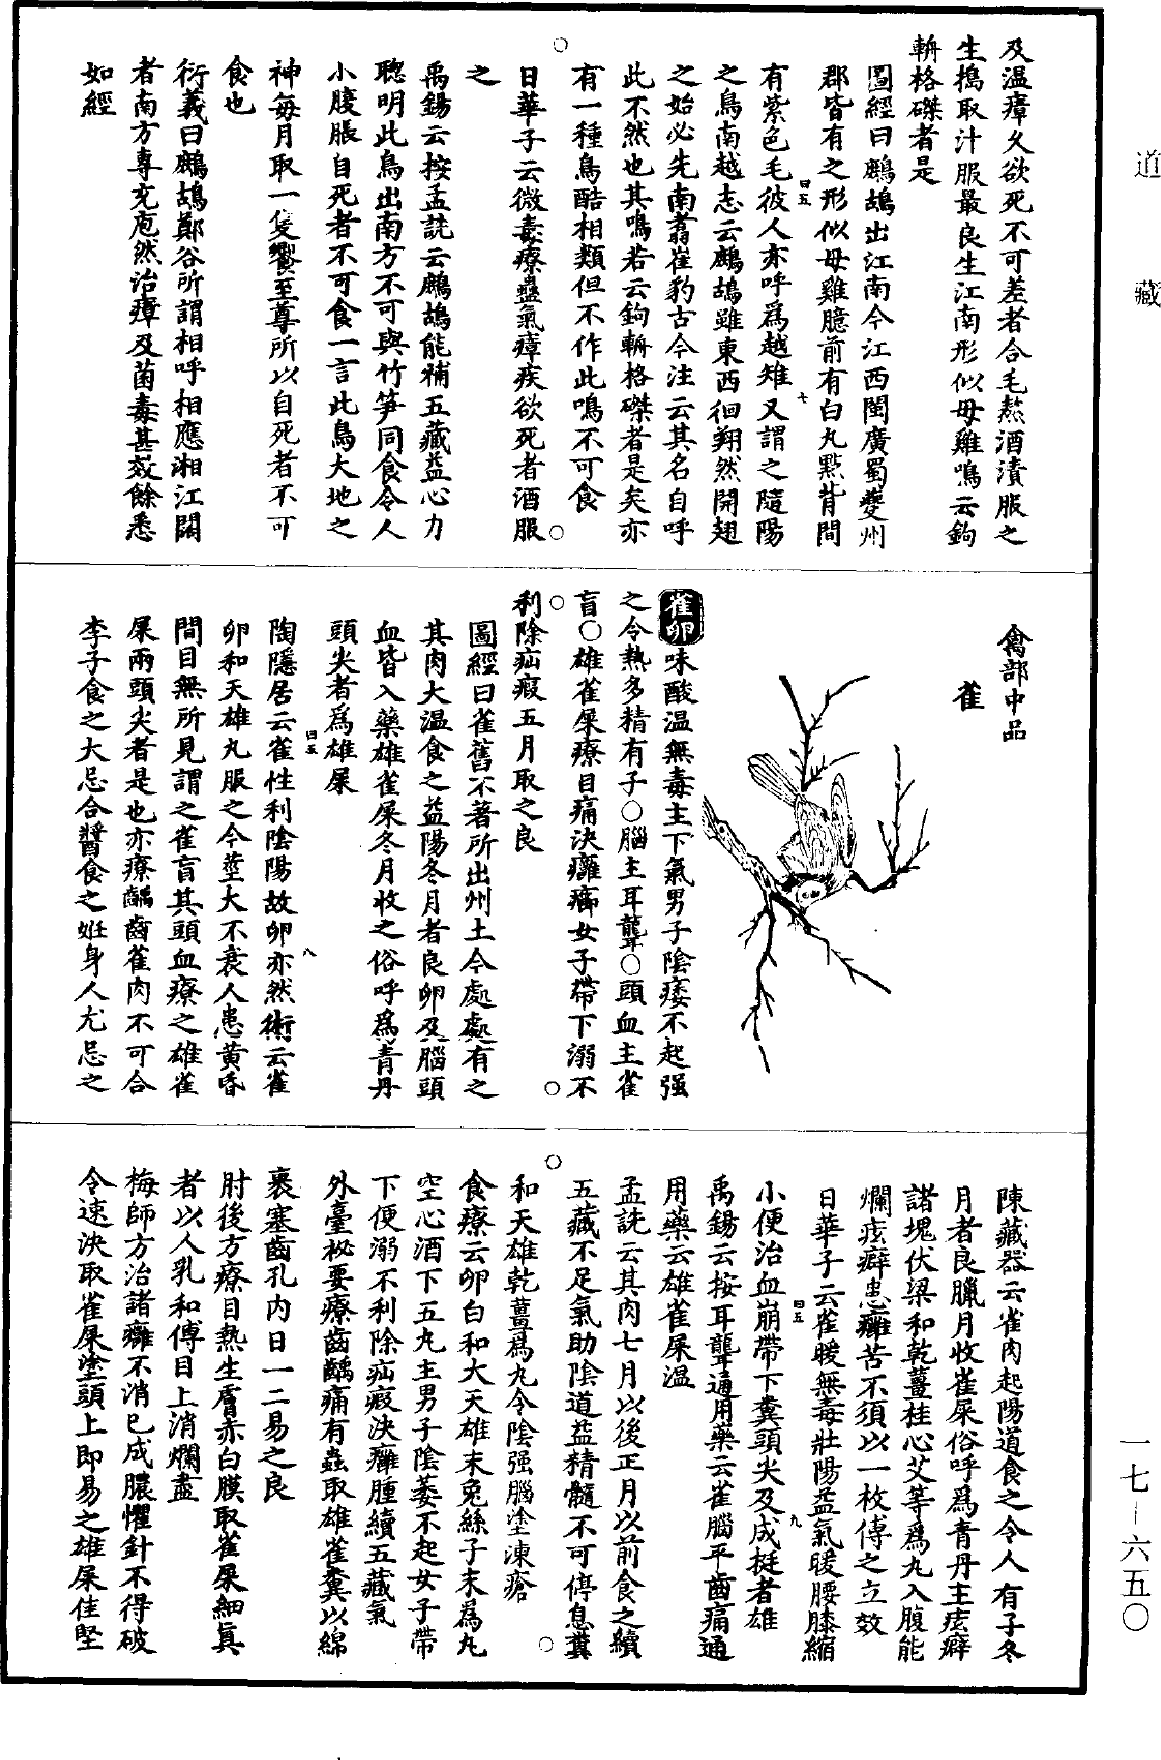 道藏
及溫瘴久欲死不可差者合毛熬酒漬服之
生擣取汁服最良生江南形似母雞鳴云鉤
輈格磔者是
圖經曰鷓鴣出江南今江西閩廣蜀夔州
郡皆有之形似母雞臆前有白丸點背間
有紫色毛彼人亦呼爲越雉又謂之隨陽
四五
七
之鳥南越志云鷓鴣雖東西徊翔然開翅
之始必先南翥崔豹古今注云其名自呼
此不然也其鳴若云鉤輈格磔者是矣亦
有一種鳥酷相類但不作此鳴不可食
日華子云微毒療蠱氣瘴疾欲死者酒服
之
禹錫云按孟詵云鷓鴣能補五藏益心力
聰明此鳥出南方不可與竹笋同食令人
小腹脹自死者不可食一言此鳥大地之
神每月取一隻饗至尊所以自死者不可
食也
衍義曰鷓鴣鄭谷所謂相呼相應湘江闊
者南方專充庖然治瘴及菌毒甚效餘悉
如經
禽部中品
雀
雀卵味酸溫無毒主下氣男子陰痿不起强
之令熱多精有子○腦主耳聾○頭血主雀
盲○雄雀屎療目痛決癰癤女子帶下溺不
利除疝瘕五月取之良
圖經曰雀舊不著所出州土今處處有之
其肉大溫食之益陽冬月者良卵及腦頭
血皆入藥雄雀屎冬月收之俗呼爲青丹
頭尖者爲雄屎
四五
八
陶隱居云雀性利陰陽故卵亦然術云雀
卵和天雄丸服之令莖大不衰人患黃昏
間目無所見謂之雀盲其頭血療之雄雀
屎兩頭尖者是也亦療齲齒雀肉不可合
李子食之大忌合醬食之姙身人尤忌之
陳藏器云雀肉起陽道食之令人有子冬
月者良臘月收雀屎俗呼爲青丹主痃癖
諸塊伏梁和乾薑桂心艾等爲丸入腹能
爛痃癖患癰苦不須以一枚傅之立效
日華子云雀暖無毒壯陽益氣暖腰膝縮
四五
九
小便治血崩帶下糞頭尖及成挺者雄
禹錫云按耳聾通用藥云雀腦平齒痛通
用藥云雄雀屎溫
孟詵云其肉七月以後正月以前食之續
五藏不足氣助陰道益精髓不可停息糞
和天雄乾薑爲丸令陰强腦塗凍瘡
食療云卵白和大天雄末兔絲子末爲丸
空心酒下五丸主男子陰萎不起女子帶
下便溺不利除疝瘕決癰腫續五藏氣
外臺秘要療齒齲痛有蟲取雄雀糞以綿
裹塞齒孔內日一二易之良
肘後方療目熱生膚赤白膜取雀屎細直
者以人乳和傅目上消爛盡
梅師方治諸癰不消已成膿懼針不得破
令速決取雀屎塗頭上即易之雄屎佳堅
一七－六五〇